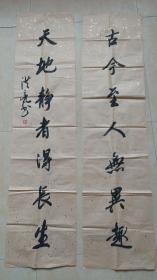 古今至人無異趣
天地静者得長生